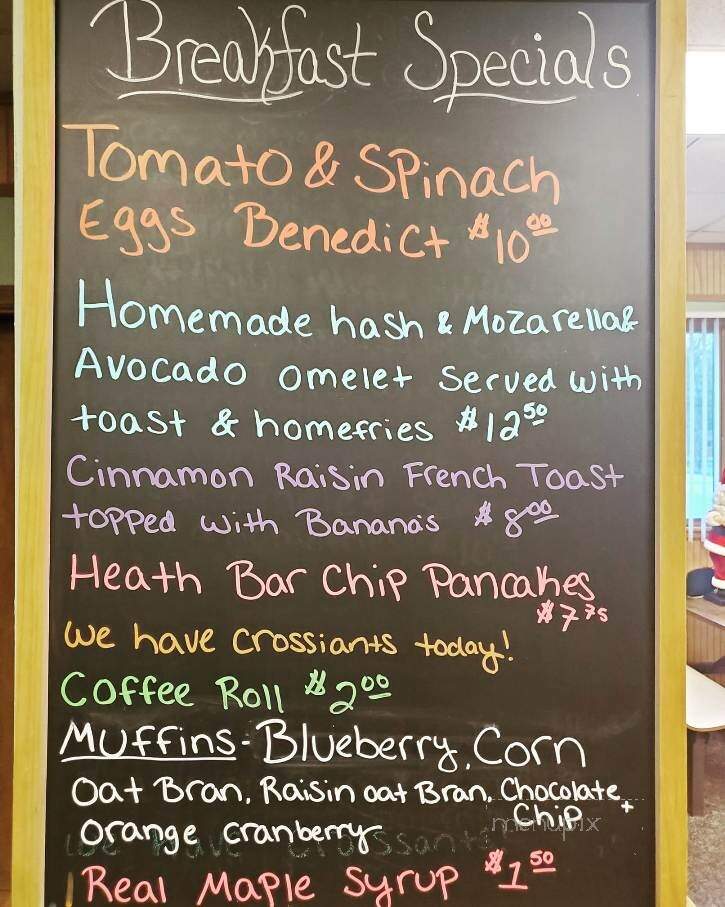 Breakfast Specials
Tomato & Spinach
Eggs Benedict $10 00
Homemade hash & Mozarella &
Avocado omelet served with
toast & homefries $12 50
Cinnamon Raisin French Toast
topped with Banana's $8 00
Heath Bar Chip Pancakes
$7 75
we have crossiants today!
Coffee Roll $2 00
Muffins - Blueberry, Corn
Oat Bran, Raisin oat Bran, Chocolate +
Chip
menupix
orange cranberry
we have crossants
Real Maple Syrup $1 50